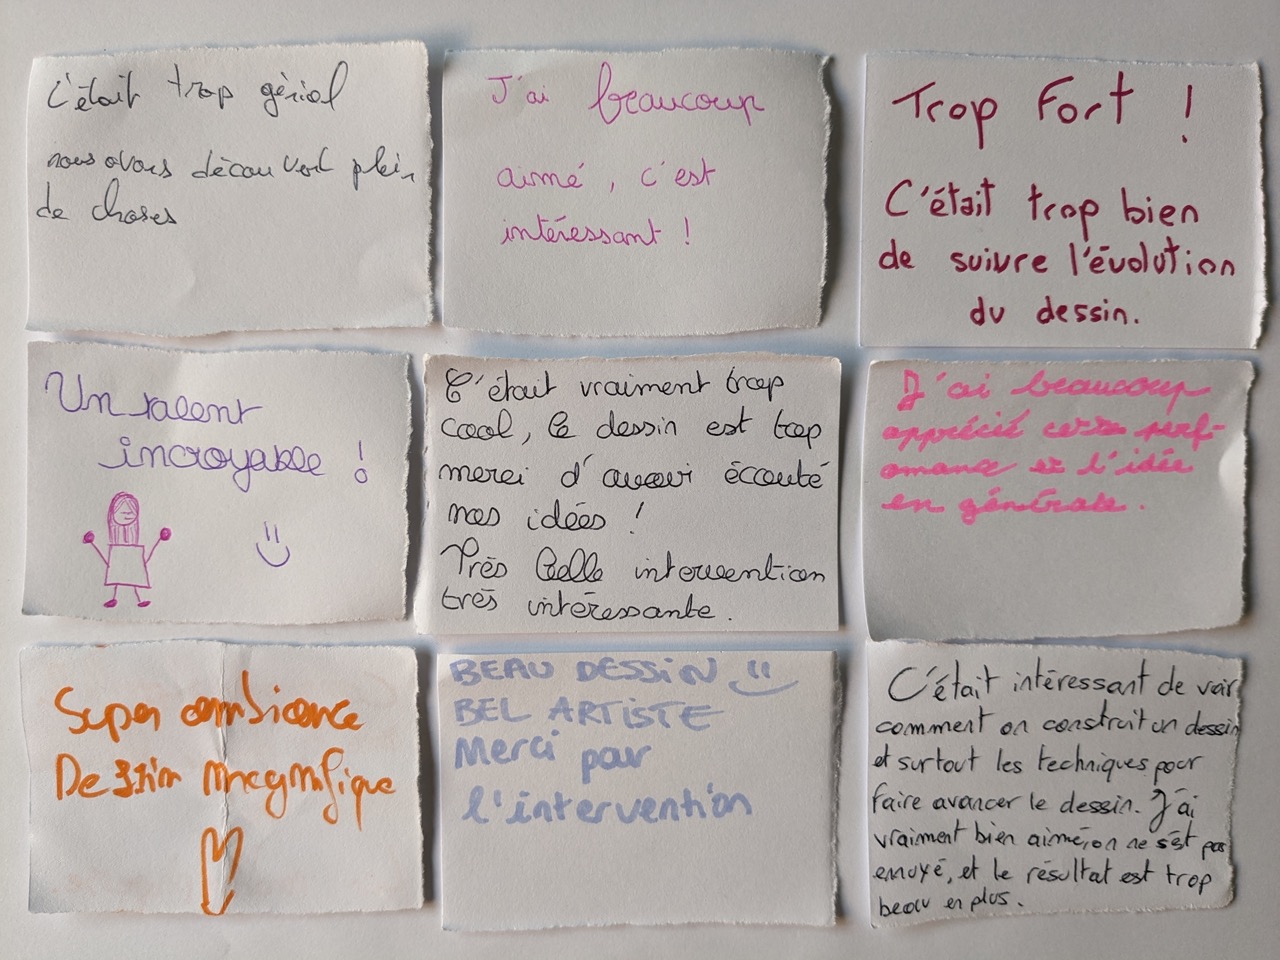 C'était trop génial
nous avons découvert plein
de choses
J'ai beaucoup
aimé, c'est
intéressant !
Trop Fort !
C'était trop bien
de suivre l'évolution
du dessin.
Un talent
incroyable !
C'était vraiment trop
cool, le dessin est trop
merci d'avoir écouté
nos idées !
Très belle intervention
très intéressante.
J'ai beaucoup
apprécié cette perf-
omance et l'idée
en générale.
Super ambiance
Dessin magnifique
BEAU DESSiN
BEL ARTiSTE
Merci pour
l'intervention
C'était intéressant de voir
comment on construit un dessin
et surtout les techniques pour
faire avancer le dessin. J'ai
vraiment bien aimé, on ne s'est pas
ennuyé, et le résultat est trop
beau en plus.